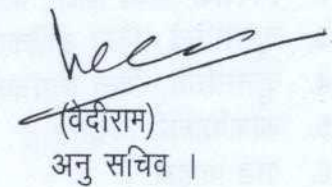 (वेदीराम)
अनु सचिव ।